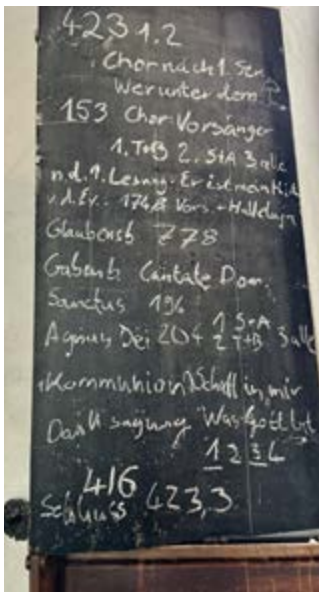 423 1.2
Chor nach 1. Ser
Wer unter dem
153 Chor Vorsänger
1. T+B 2. S+A 3 alle
n.d. 1. Lesung. Er ist mein
v.d. Ev. 174,8 Vors. + Halleluja
Glaubensb 778
Gabenb. Cantate Dom.
Sanctus 196
Agnus Dei 204 1 S+A 2 T+B 3 alle
(Kommunion) Schaff in mir
Danksagung Was Gott tut
1 2 3 4
416
Schluss 423,3